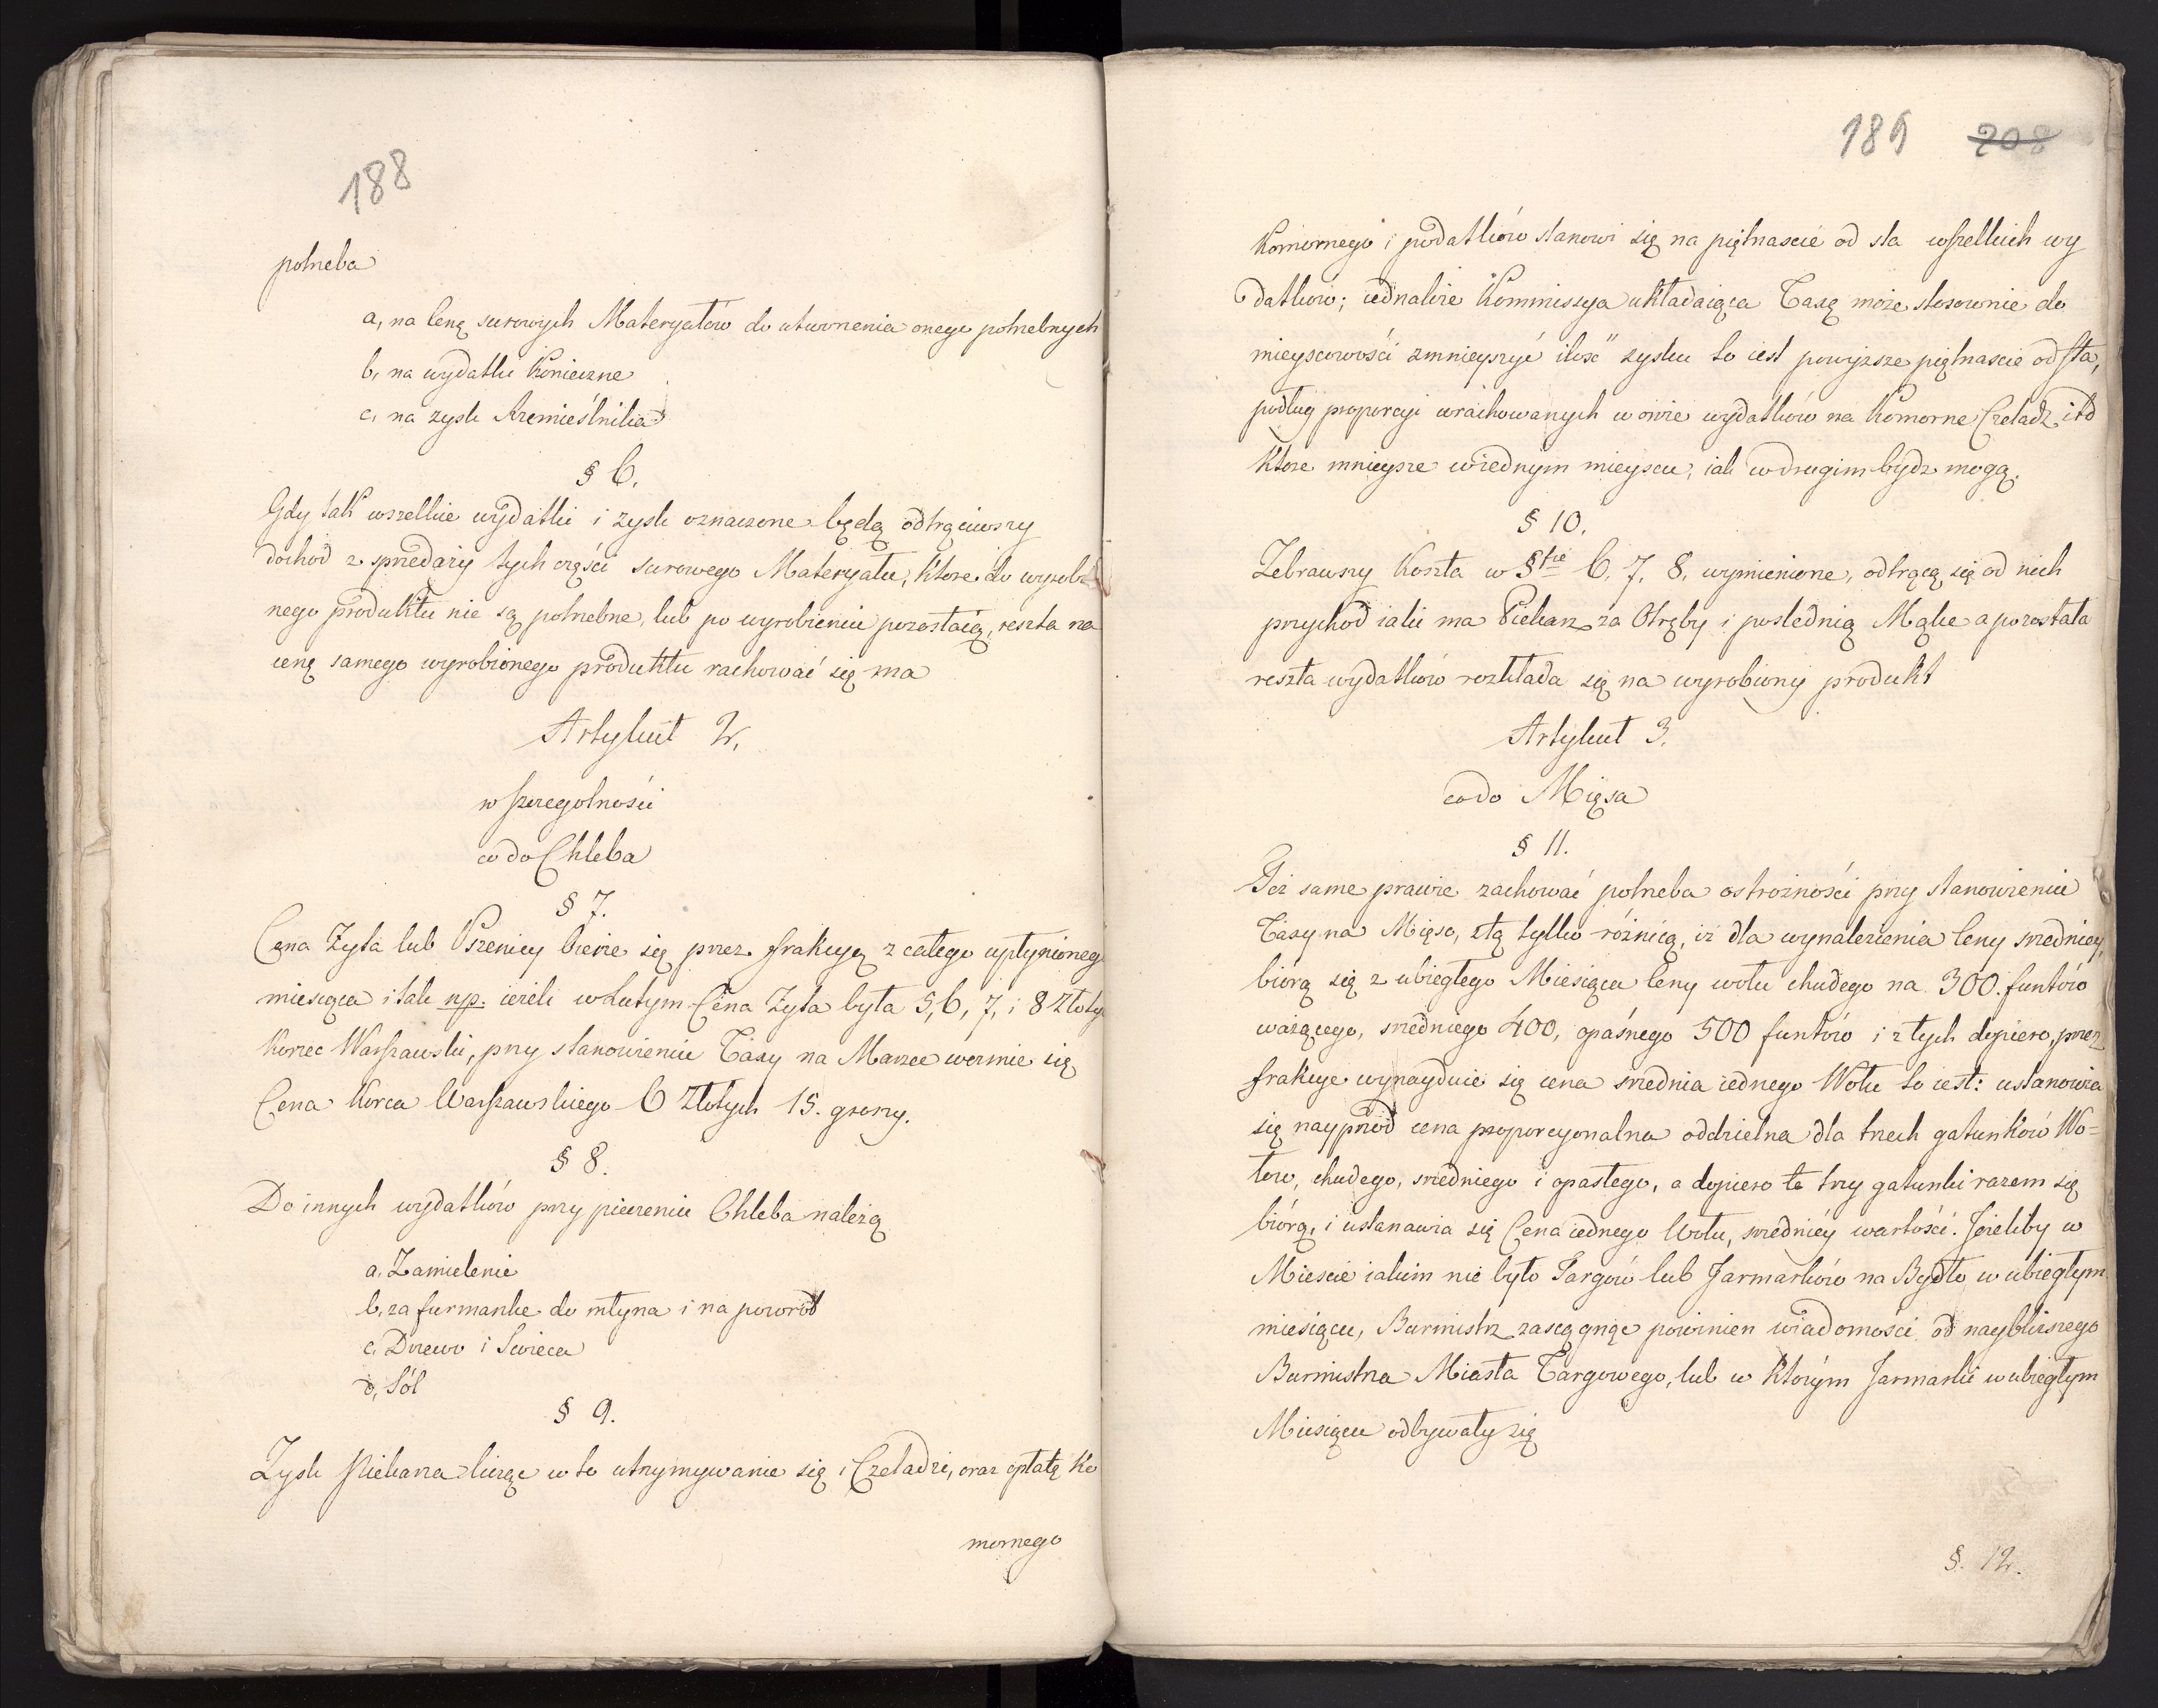 188
potrzeba
a, na Cenę surowych Materyałow do utworzenia onego potrzebnych
b, na wydatki konieczne
c, na zysk Rzemieślnika
§ 6.
Gdy tak wszelkie wydatki i zysk oznaczone będą odtrąciwszy
dochod z sprzedaży tych części surowego Materyału, ktore do wyrobio
nego produktu nie są potrzebne, lub po wyrobieniu pozostaią, reszta na
cenę samego wyrobionego produktu rachować się ma
Artykuł 2.
w szczegolności
co do Chleba
§ 7.
Cena Żyta lub Pszenicy bierze się przez frakcyę z całego upłynioneg
miesiąca i tak np. ieżeli w Lutym Cena Żyta była 5, 6, 7, i 8 Złoty
Korzec Warszawski, przy stanowieniu Taxy na Marzec weźmie się
Cena Korca Warszawskiego 6 Złotych 15. groszy.
§ 8.
Do innych wydatków przy pieczeniu Chleba należą
a. Zamielenie
b. za furmankę do młyna i na powrot
c. Drzewo i Świeca
d, Sól
§ 9.
Zysk Piekarza licząc w to utrzymywanie się i Czeladzi, oraz opłatę Ko
mornego
189 208
Komornego i podatków stanowi się na piętnaście od sta wszelkich wy
datków; iednakże Kommissya układaiąca Taxę może stosownie do
mieyscowości zmnieyszyć ilość zysku to iest powyższe piętnascie od sta,
podług proporcyi wrachowanych w onie wydatków na Komorne Czeladz itd
Ktore mnieysze w iednym mieyscu, iak w drugim bydz mogą.
§ 10.
Zebrawszy Koszta w §fie 6. 7. 8. wymienione, odtrącą się od nich
przychod iaki ma Piekarz za Otręby i poslednią Mąkę a pozostała
reszta wydatków rozkłada się na wyrobiony produkt
Artykuł 3.
co do Mięsa
§ 11.
Też same prawie zachować potrzeba ostrożności przy stanowieniu
Taxy na Mięso, z tą tylko różnicą, iż dla wynalezienia Ceny sredniey,
biorą się z ubiegłego Miesiąca Ceny wołu chudego na 300. funtów
ważącego, sredniego 400, opaśnego 500 funtów i z tych dopiero, przez
frakcye wynayduie się cena srednia iednego Wołu to iest: ustanowia
się nayprzod cena proporcyonalna oddzielna dla trzech gatunków Wo=
łow, chudego, sredniego i opasłego, a dopiero te trzy gatunki razem się
biórą, i ustanawia się Cena iednego Wołu, sredniéy wartości. Jeżeliby w
Miescie iakim nie było Targów lub Jarmarków na Bydło w ubiegłym
miesiącu, Burmistrz zasięgnąc powinien wiadomości od naybliższego
Burmistrza Miasta Targowego, lub w którym Jarmarki w ubiegłym
Miesiącu odbywały się
§. 12.